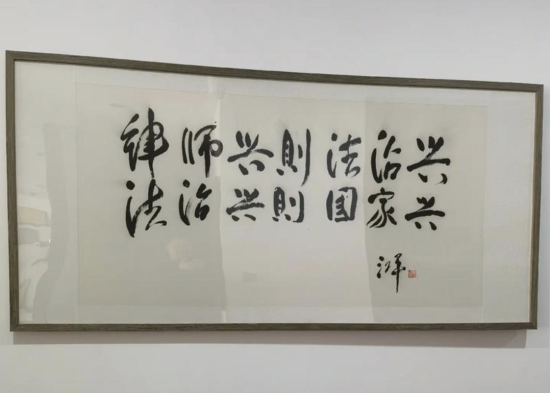 律师兴則法治兴
法治兴則国家兴
江平